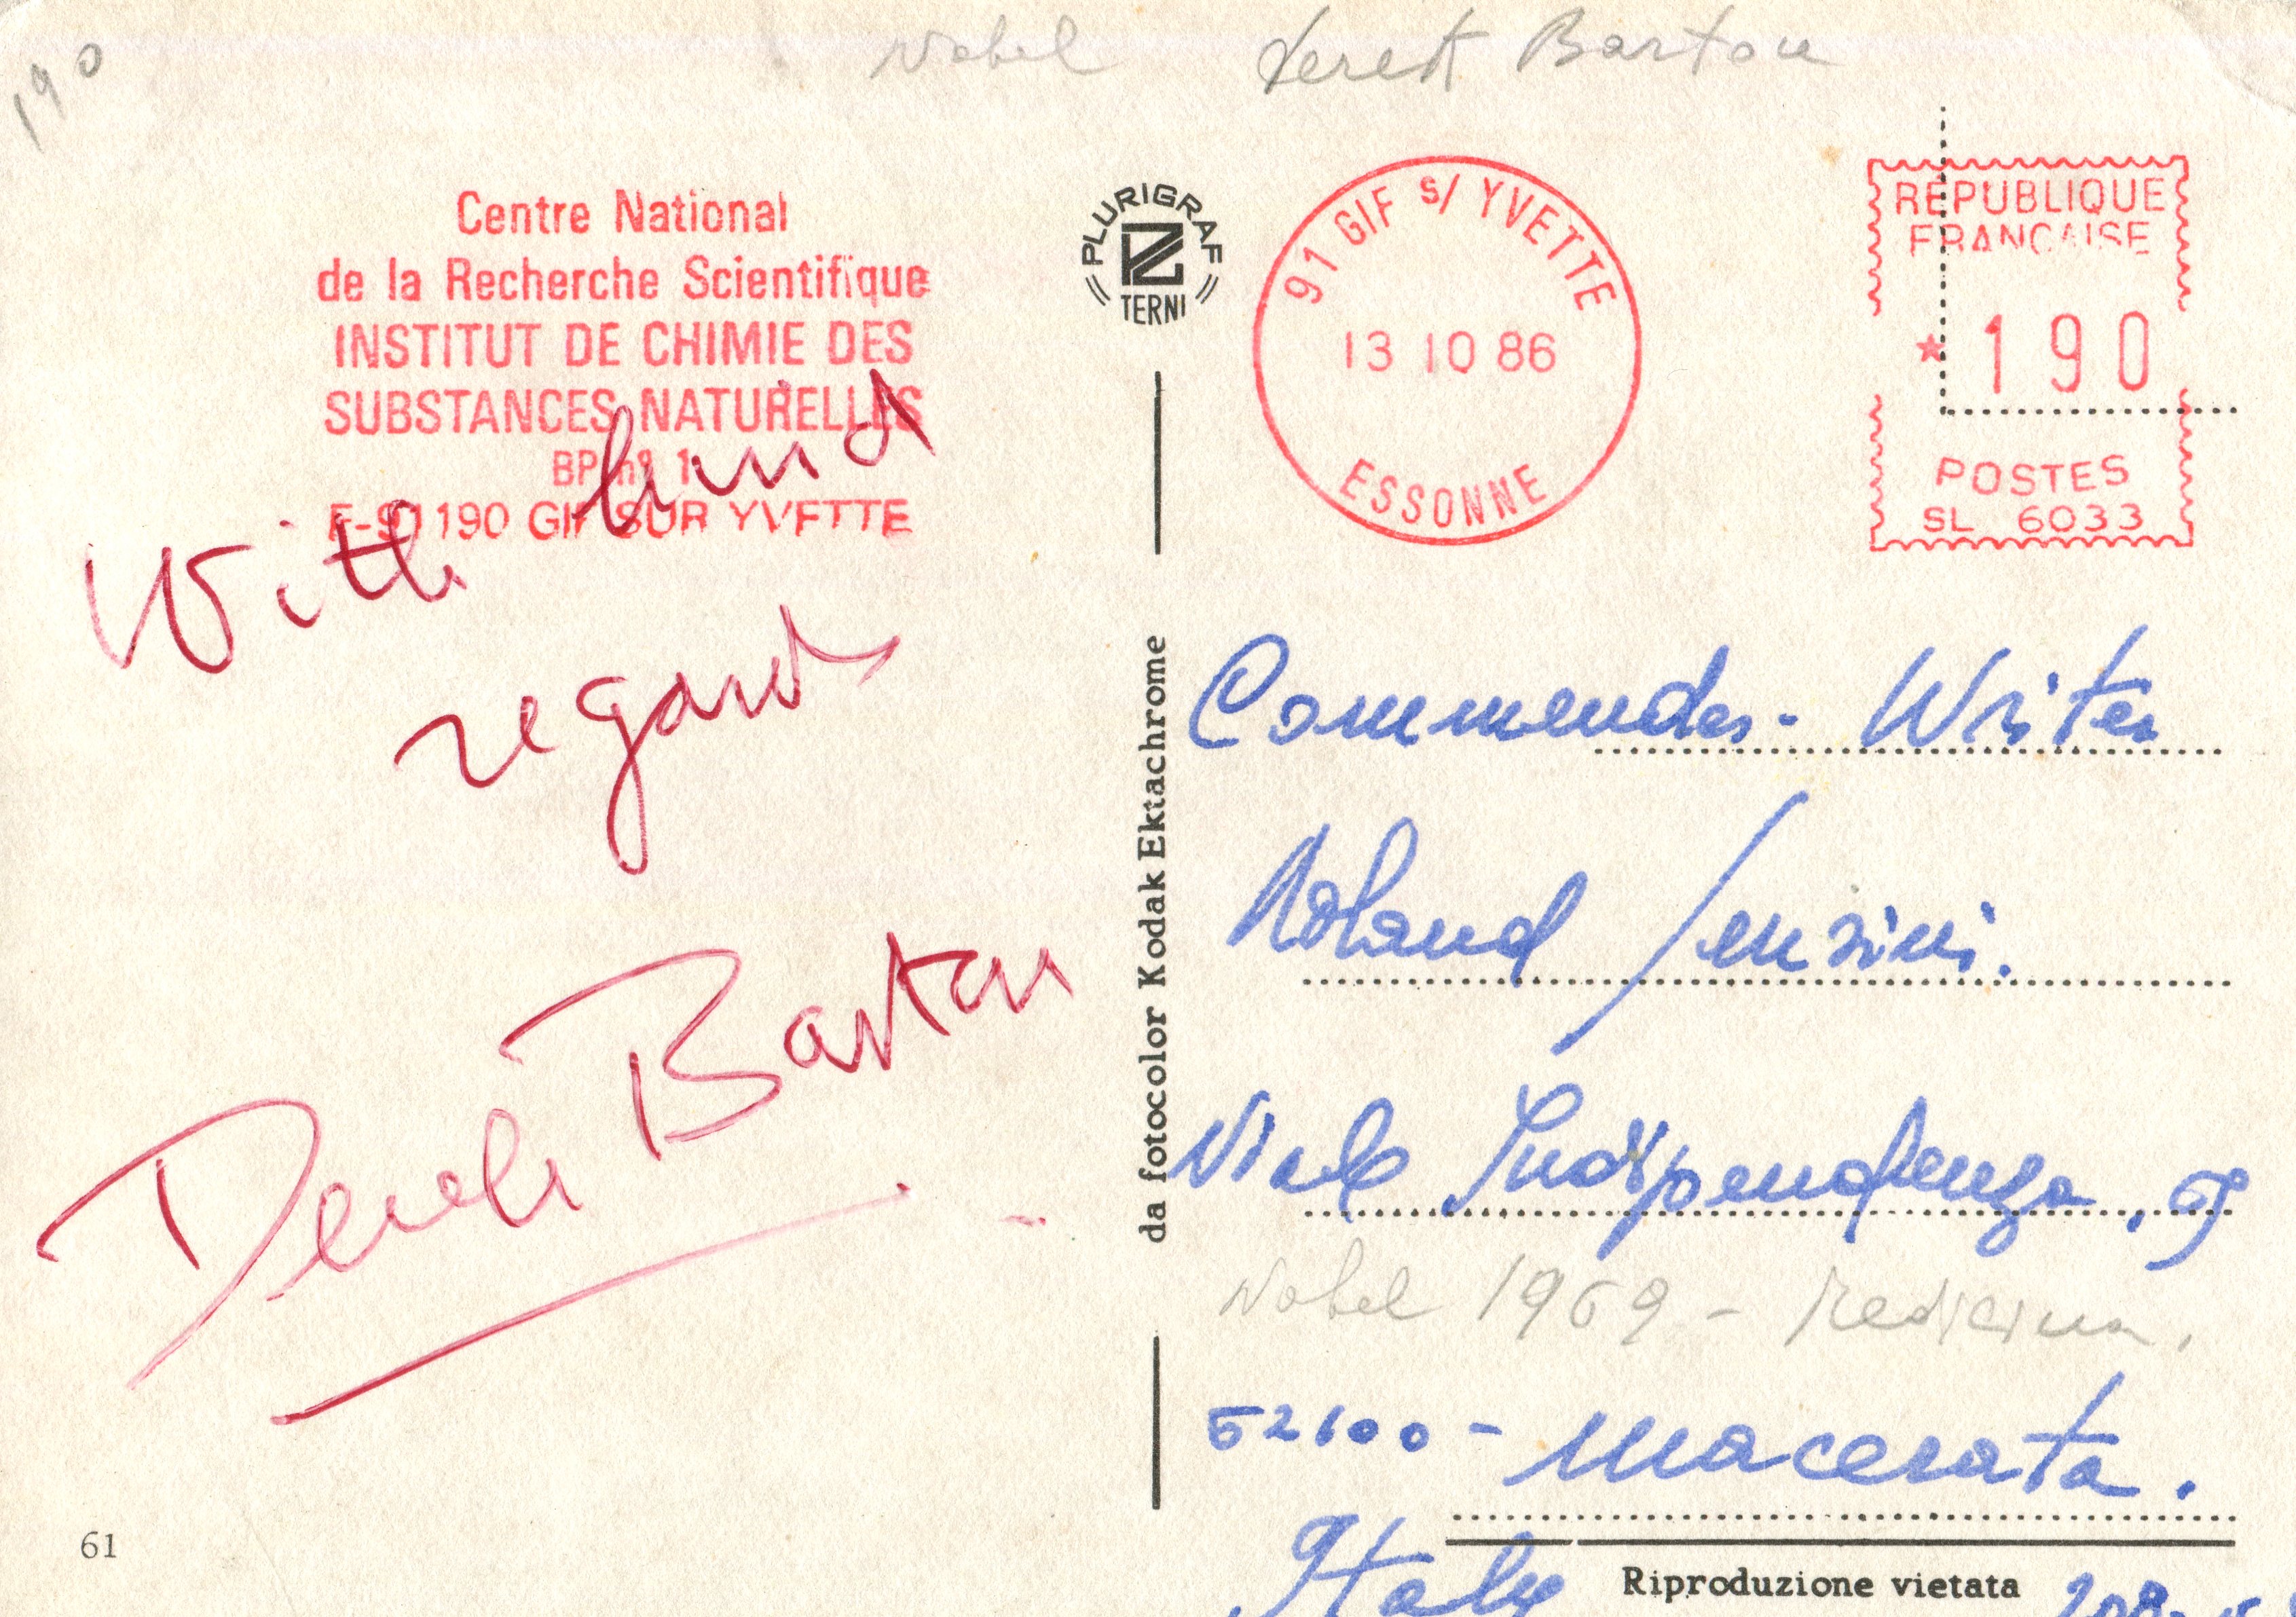 190
Nobel Derek Barton
Centre National
de la Recherche Scientifique
INSTITUT DE CHIMIE DES
SUBSTANCES NATURELLES
BP n° 1
F-91190 GIF SUR YVETTE
With kind
regards
Derek Barton
61
PLURIGRAF
TERNI
da fotocolor Kodak Ektachrome
91 GIF s/ YVETTE
13 10 86
ESSONNE
REPUBLIQUE
FRANCAISE
* 190
POSTES
SL 6033
Commender- Writer
Roland Sensini.
Viale Indipendenza,
Nobel 1969 - Medicina.
62100 - Macerata.
Italy
Riproduzione vietata